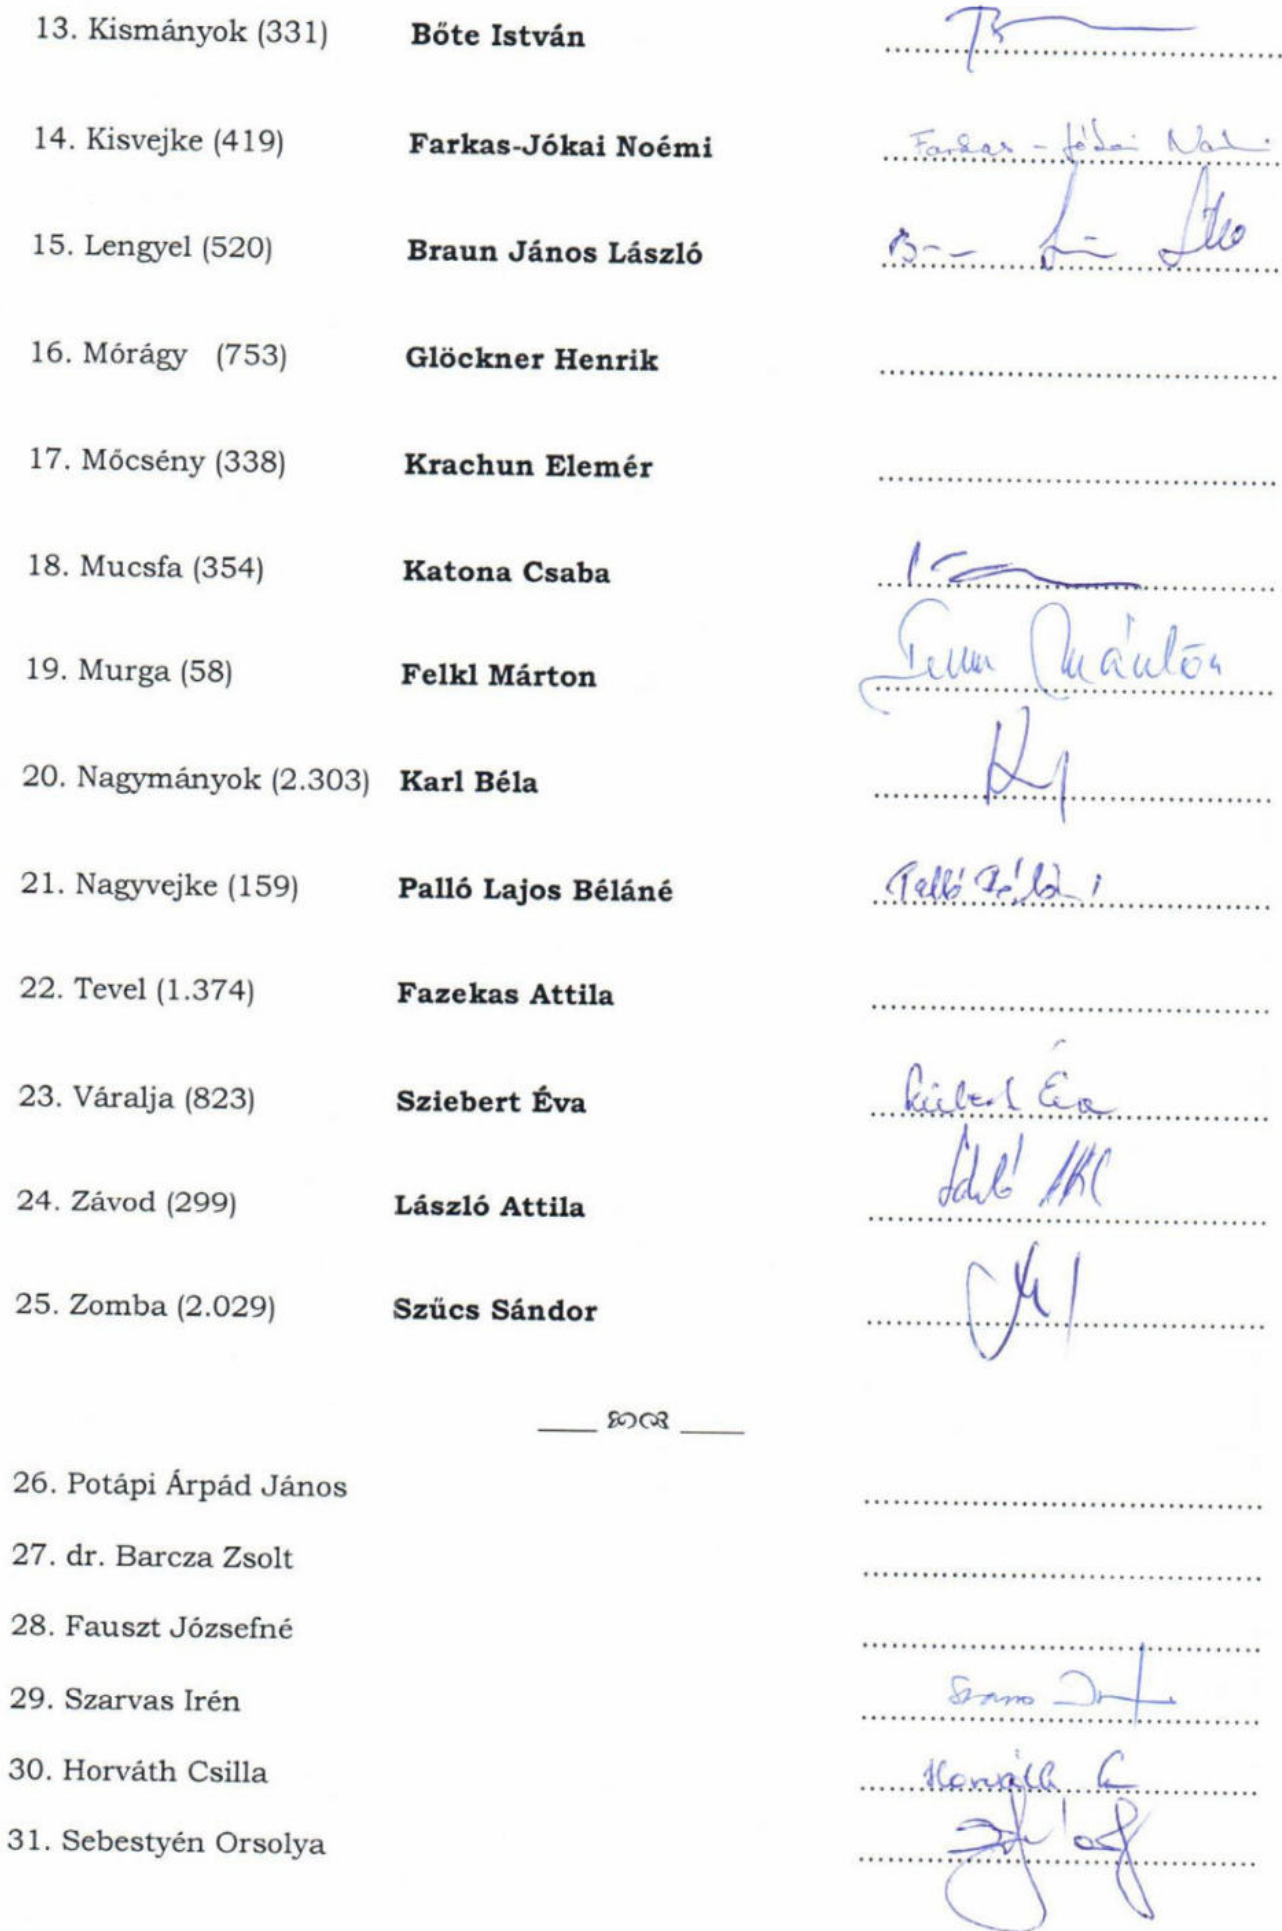 13. Kismányok (331) Bőte István
14. Kisvejke (419) Farkas-Jókai Noémi Farkas - Jókai
15. Lengyel (520) Braun János László
16. Mórágy (753) Glöckner Henrik
17. Mőcsény (338) Krachun Elemér
18. Mucsfa (354) Katona Csaba
19. Murga (58) Felkl Márton Márton
20. Nagymányok (2.303) Karl Béla
21. Nagyvejke (159) Palló Lajos Béláné Palló Béláné
22. Tevel (1.374) Fazekas Attila
23. Váralja (823) Sziebert Éva Sziebert Éva
24. Závod (299) László Attila
25. Zomba (2.029) Szűcs Sándor
26. Potápi Árpád János
27. dr. Barcza Zsolt
28. Fauszt Józsefné
29. Szarvas Irén
30. Horváth Csilla Horváth
31. Sebestyén Orsolya